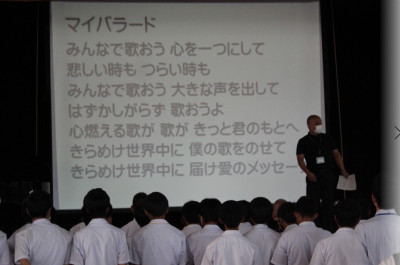 マイバラード
みんなで歌おう 心を一つにして
悲しい時も つらい時も
みんなで歌おう 大きな声を出して
はずかしがらず 歌おうよ
心燃える歌が 歌が きっと君のもとへ
きらめけ世界中に 僕の歌をのせて
きらめけ世界中に 届け愛のメッセー